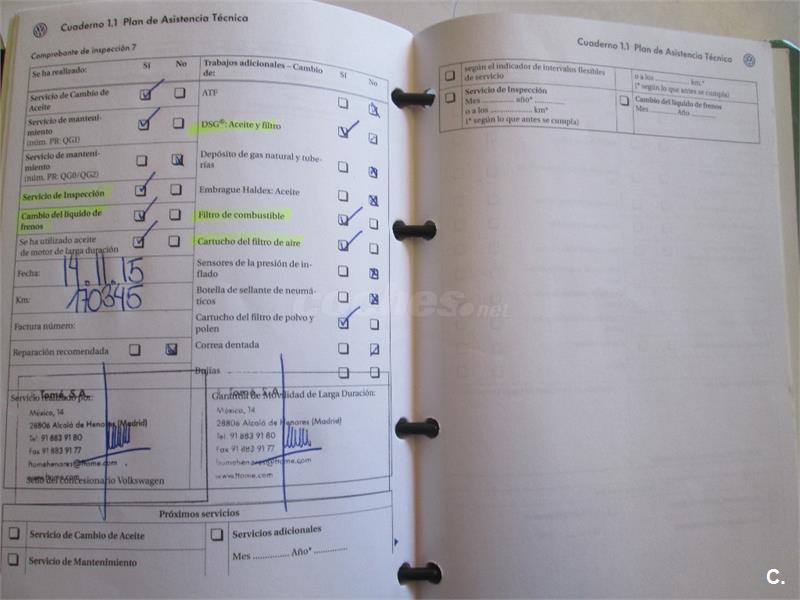 Cuaderno 1.1 Plan de Asistencia Técnica
Comprobante de inspección 7
Se ha realizado: Sí No
Servicio de Cambio de
Aceite
Servicio de manteni-
miento
(núm. PR: QG1)
Servicio de manteni-
miento
(núm. PR: QG0/QG2)
Servicio de Inspección
Cambio del líquido de
frenos
Se ha utilizado aceite
de motor de larga duración
Fecha: 14.11.15
Km: 170345
Factura número:
Reparación recomendada
Trabajos adicionales – Cambio Sí No
de:
ATF
DSG®: Aceite y filtro
Depósito de gas natural y tube-
rías
Embrague Haldex: Aceite
Filtro de combustible
Cartucho del filtro de aire
Sensores de la presión de in-
flado
Botella de sellante de neumá-
ticos
Cartucho del filtro de polvo y
polen
Correa dentada
Bujías
Servicio realizado por:
Tomé, S.A.
México, 14
28806 Alcalá de Henares (Madrid)
Tel. 91 883 91 80
Fax 91 883 91 77
ftomehenares@ftome.com
www.ftome.com
Sello del concesionario Volkswagen
Garantía de Movilidad de Larga Duración:
Tomé, S.A.
México, 14
28806 Alcalá de Henares (Madrid)
Tel. 91 883 91 80
Fax 91 883 91 77
ftomehenares@ftome.com
www.ftome.com
Próximos servicios
Servicio de Cambio de Aceite
Servicio de Mantenimiento
Servicios adicionales
Mes .............. Año* ..............
Cuaderno 1.1 Plan de Asistencia Técnica
según el indicador de intervalos flexibles
de servicio
Servicio de Inspección
Mes .............. año* ..............
o a los .................. km*
(* según lo que antes se cumpla)
o a los .................. km*
(* según lo que antes se cumpla)
Cambio del líquido de frenos
Mes .............. Año ..............
coches.net
C.